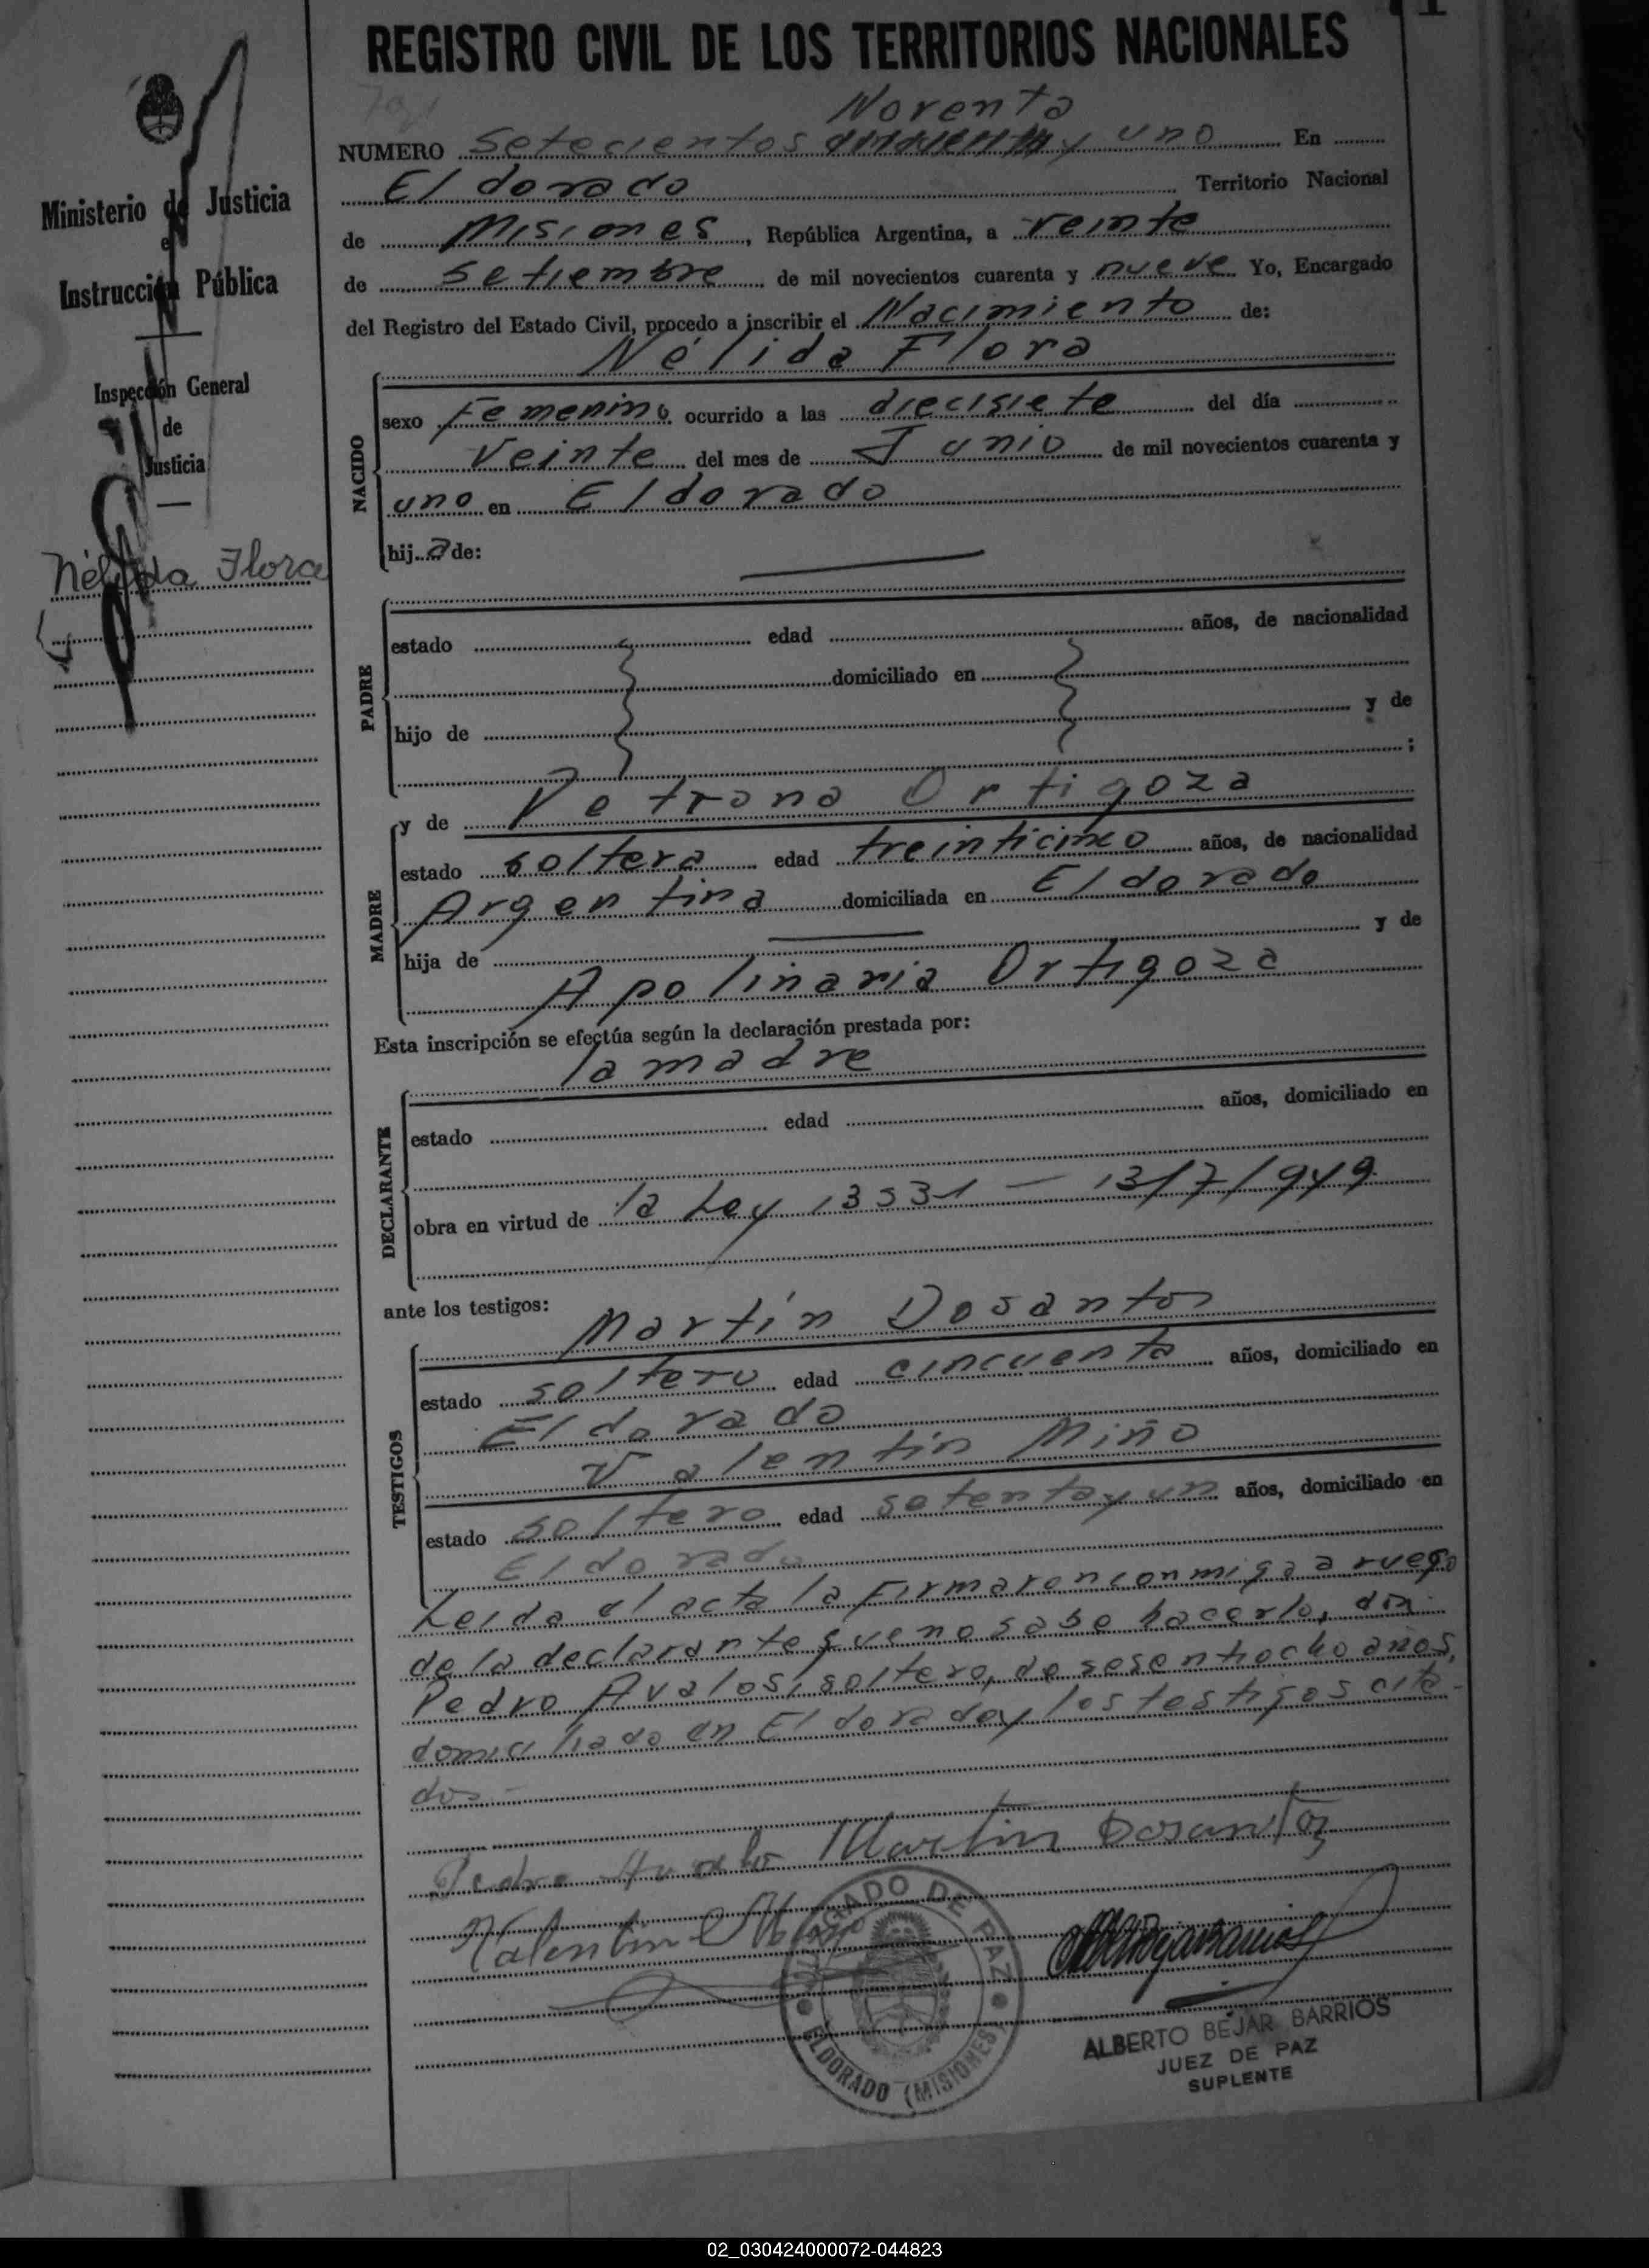 REGISTRO CIVIL DE LOS TERRITORIOS NACIONALES
791
Noventa
NUMERO Setecientos y uno En
Eldorado Territorio Nacional
de Misiones, República Argentina, a veinte
de Setiembre de mil novecientos cuarenta y nueve Yo, Encargado
del Registro del Estado Civil, procedo a inscribir el Nacimiento de:
Nélida Flora
NACIDO
sexo Femenino ocurrido a las diecisiete del día
Veinte del mes de Junio de mil novecientos cuarenta y
uno en Eldorado
hija de:
PADRE
estado edad años, de nacionalidad
domiciliado en
hijo de y de
;
y de Petrona Ortigoza
MADRE
estado soltera edad treinticinco años, de nacionalidad
Argentina domiciliada en Eldorado
hija de y de
Apolinaria Ortigoza
Esta inscripción se efectúa según la declaración prestada por:
la madre
DECLARANTE
estado edad años, domiciliado en
obra en virtud de la Ley 13531 — 13/7/949
ante los testigos:
Martín Dosantos
TESTIGOS
estado soltero edad cincuenta años, domiciliado en
Eldorado
Valentín Miño
estado soltero edad setentayun años, domiciliado en
Eldorado
Leida el acta la Firmaron conmigo a ruego
de la declarante que no sabe hacerlo, don
Pedro Avalos, soltero, de sesentiocho años,
domiciliado en Eldorado y los testigos cita-
dos-
Pedro Avalo Martin Dosantos
Valentin Miño
JUZGADO DE PAZ
ELDORADO (MISIONES)
ALBERTO BEJAR BARRIOS
JUEZ DE PAZ
SUPLENTE
Ministerio de Justicia
e
Instrucción Pública
Inspección General
de
Justicia
Nélida Flora
02_030424000072-044823